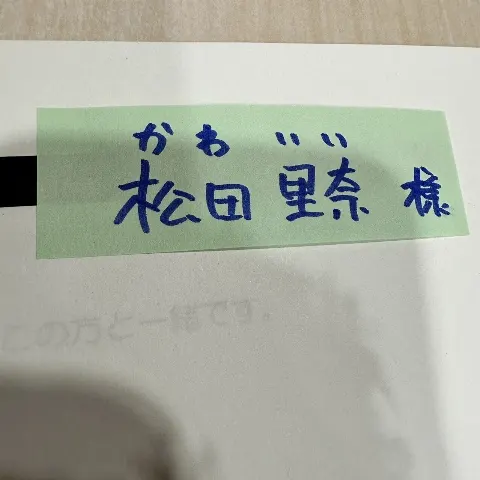 かわ いい
松田 里奈 様
この方と一緒です。